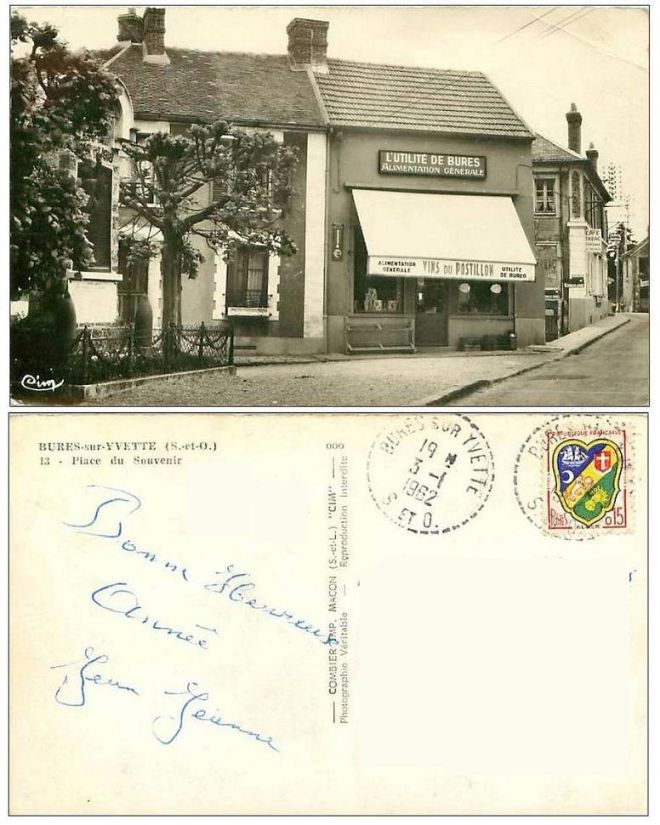 L'UTILITÉ DE BURES
ALIMENTATION GÉNÉRALE
ALIMENTATION GÉNÉRALE
VINS DU POSTILLON
UTILITÉ DE BURES
CAFÉ
TABAC
Cim
BURES-sur-YVETTE (S.-et-O.)
13 - Place du Souvenir
000
Bonne Heureuse
Année
Jean Jeanne
COMBIER IMP. MACON (S.-et-L.) "CIM"
Photographie Véritable — Reproduction Interdite
BURES SUR YVETTE
19 H
3-1
1962
S. ET O.
REPUBLIQUE FRANÇAISE
POSTES
0,15
ALGER